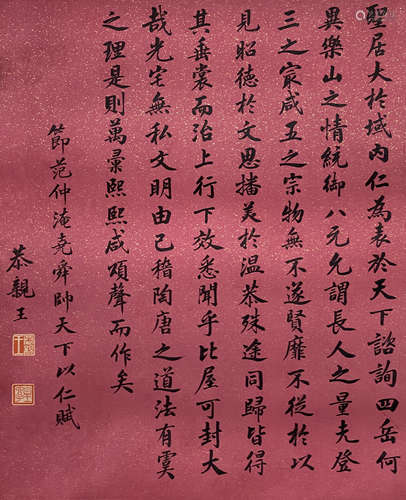 聖居大於域内仁為表於天下諮詢四岳何
異樂山之情統御八元允謂長人之量夫登
三之寂咸五之宗物無不遂賢靡不從於以
見昭德於文思播美於溫恭殊途同歸皆得
其垂裳而治上行下效悉聞乎比屋可封大
哉光宅無私文明由己稽陶唐之道法有虞
之理是則萬彙熙熙咸頌聲而作矣
節范仲淹堯舜帥天下以仁賦
恭親王